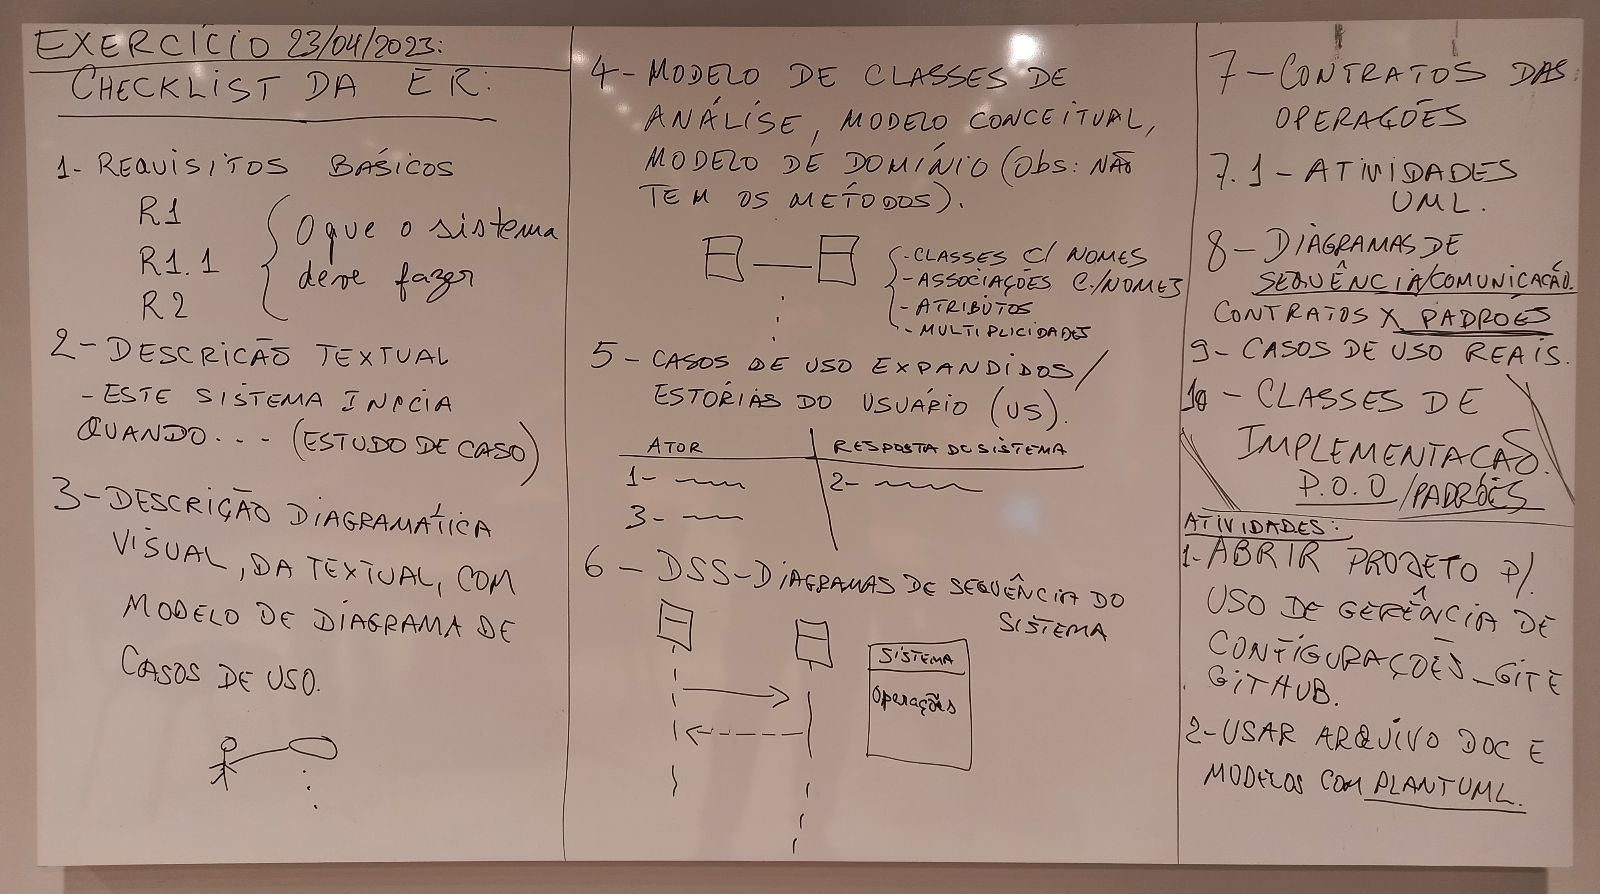 EXERCÍCIO 23/04/2023:
CHECKLIST DA ER:
1- REQUISITOS BÁSICOS
R1
R1.1
R2
O que o sistema
deve fazer
2- DESCRICÃO TEXTUAL
- ESTE SISTEMA INICIA
QUANDO... (ESTUDO DE CASO)
3- DESCRIÇÃO DIAGRAMÁTICA
VISUAL, DA TEXTUAL, COM
MODELO DE DIAGRAMA DE
CASOS DE USO.
4- MODELO DE CLASSES DE
ANÁLISE, MODELO CONCEITUAL,
MODELO DE DOMÍNIO (Obs: NÃO
TEM OS METÓDOS).
- CLASSES C/ NOMES
- ASSOCIAÇÕES C/NOMES
- ATRIBUTOS
- MULTIPLICIDADES
5- CASOS DE USO EXPANDIDOS/
ESTÓRIAS DO USUÁRIO (US).
ATOR
RESPOSTA DO SISTEMA
1-
2-
3-
6- DSS-DIAGRAMAS DE SEQUÊNCIA DO
SISTEMA
SISTEMA
Operações
7- CONTRATOS DAS
OPERAÇÕES
7.1- ATIVIDADES
UML.
8- DIAGRAMAS DE
SEQUÊNCIA/COMUNICAÇÃO.
CONTRATOS X PADRÕES
9- CASOS DE USO REAIS.
10- CLASSES DE
IMPLEMENTAÇÃO.
P.O.O /PADRÕES
ATIVIDADES:
1- ABRIR PROJETO P/.
USO DE GERÊNCIA DE
CONFIGURAÇÕES_GIT E
GITHUB.
2- USAR ARQUIVO DOC E
MODELOS COM PLANTUML.